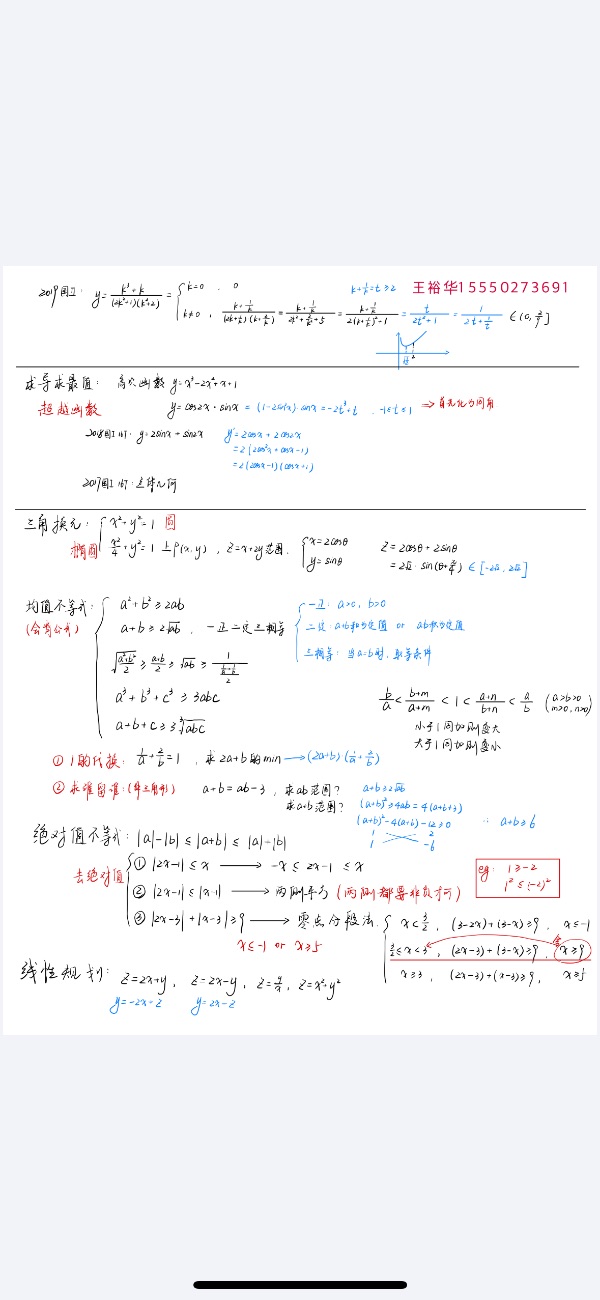 2019国II: y = (k³+k)/((2k²+1)(k²+2)) = { k=0, 0
k≠0, (k+1/k)/((2k+1/k)(k+2/k)) = (k+1/k)/(2k²+2/k²+5) = (k+1/k)/(2(k+1/k)²+1) = t/(2t²+1) = 1/(2t+1/t) ∈ (0, 2/9]
k+1/k=t≥2
王裕华15550273691
求导求最值: 高次函数 y=x³-2x²+x+1
超越函数 y=cos2x·sinx = (1-2sin²x)·sinx = -2t³+t, -1≤t≤1 ⇒首先化为同角
2018国I 16T: y=2sinx+sin2x y'=2cosx+2cos2x
=2(2cos²x+cosx-1)
=2(2cosx-1)(cosx+1)
2017国I 16T: 立体几何
三角换元: { x²+y²=1 圆
椭圆 x²/4+y²=1 上P(x,y), Z=x+2y范围. { x=2cosθ y=sinθ Z=2cosθ+2sinθ
=2√2·sin(θ+π/4) ∈[-2√2, 2√2]
均值不等式: { a²+b²≥2ab
(含有公式) a+b≥2√ab, 一正二定三相等
√((a²+b²)/2) ≥ (a+b)/2 ≥ √ab ≥ 1/((1/a+1/b)/2)
a³+b³+c³≥3abc
a+b+c≥3∛abc
一正: a>0, b>0
二定: a+b和为定值 or ab积为定值
三相等: 当a=b时, 取等条件
b/a < (b+m)/(a+m) < 1 < (a+n)/(b+n) < a/b (a>b>0 m>0, n>0)
小于1同加则变大
大于1同加则变小
① 1的代换: 1/a+2/b=1, 求2a+b的min → (2a+b)(1/a+2/b)
② 求谁留谁: (解三角形) a+b=ab-3, 求ab范围? a+b≥2√ab
求a+b范围? (a+b)²≥4ab=4(a+b+3)
(a+b)²-4(a+b)-12≥0 ∴ a+b≥6
1 2
1 -6
绝对值不等式: |a|-|b|≤|a+b|≤|a|-|b|
去绝对值 { ① |2x-1|≤x → -x≤2x-1≤x
② |2x-1|≤|x-1| → 两侧平方 (两侧都要非负才可)
eg: 1≥-2
1²≤(-2)²
③ |2x-3|+|x-3|≥9 → 零点分段法. { x<3/2, (3-2x)+(3-x)≥9, x≤-1
3/2≤x<3, (2x-3)+(3-x)≥9, x≥9 舍
x≥3, (2x-3)+(x-3)≥9, x≥5
x≤-1 or x≥5
线性规划: Z=2x+y, Z=2x-y, Z=y/x, Z=x²+y²
y=-2x+Z y=2x-Z